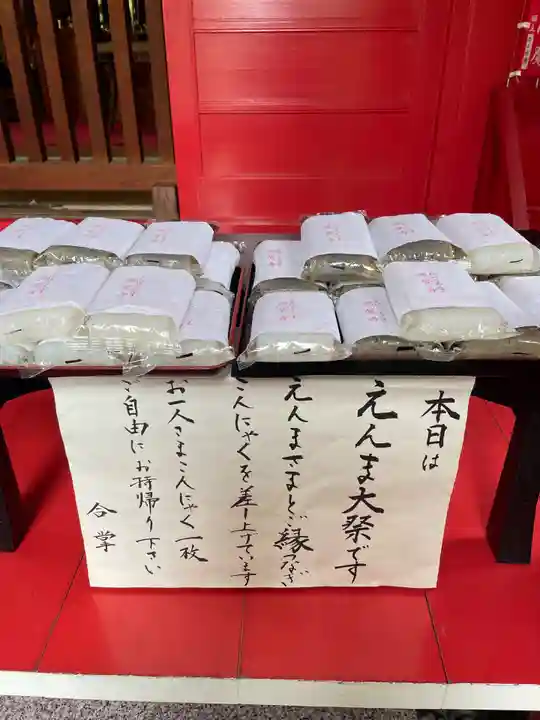 本日は
えんま大祭です
えんまさまとご縁つなぎ
こんにゃくを差し上げています
お一人さまこんにゃく一枚
ご自由にお持帰り下さい
合掌